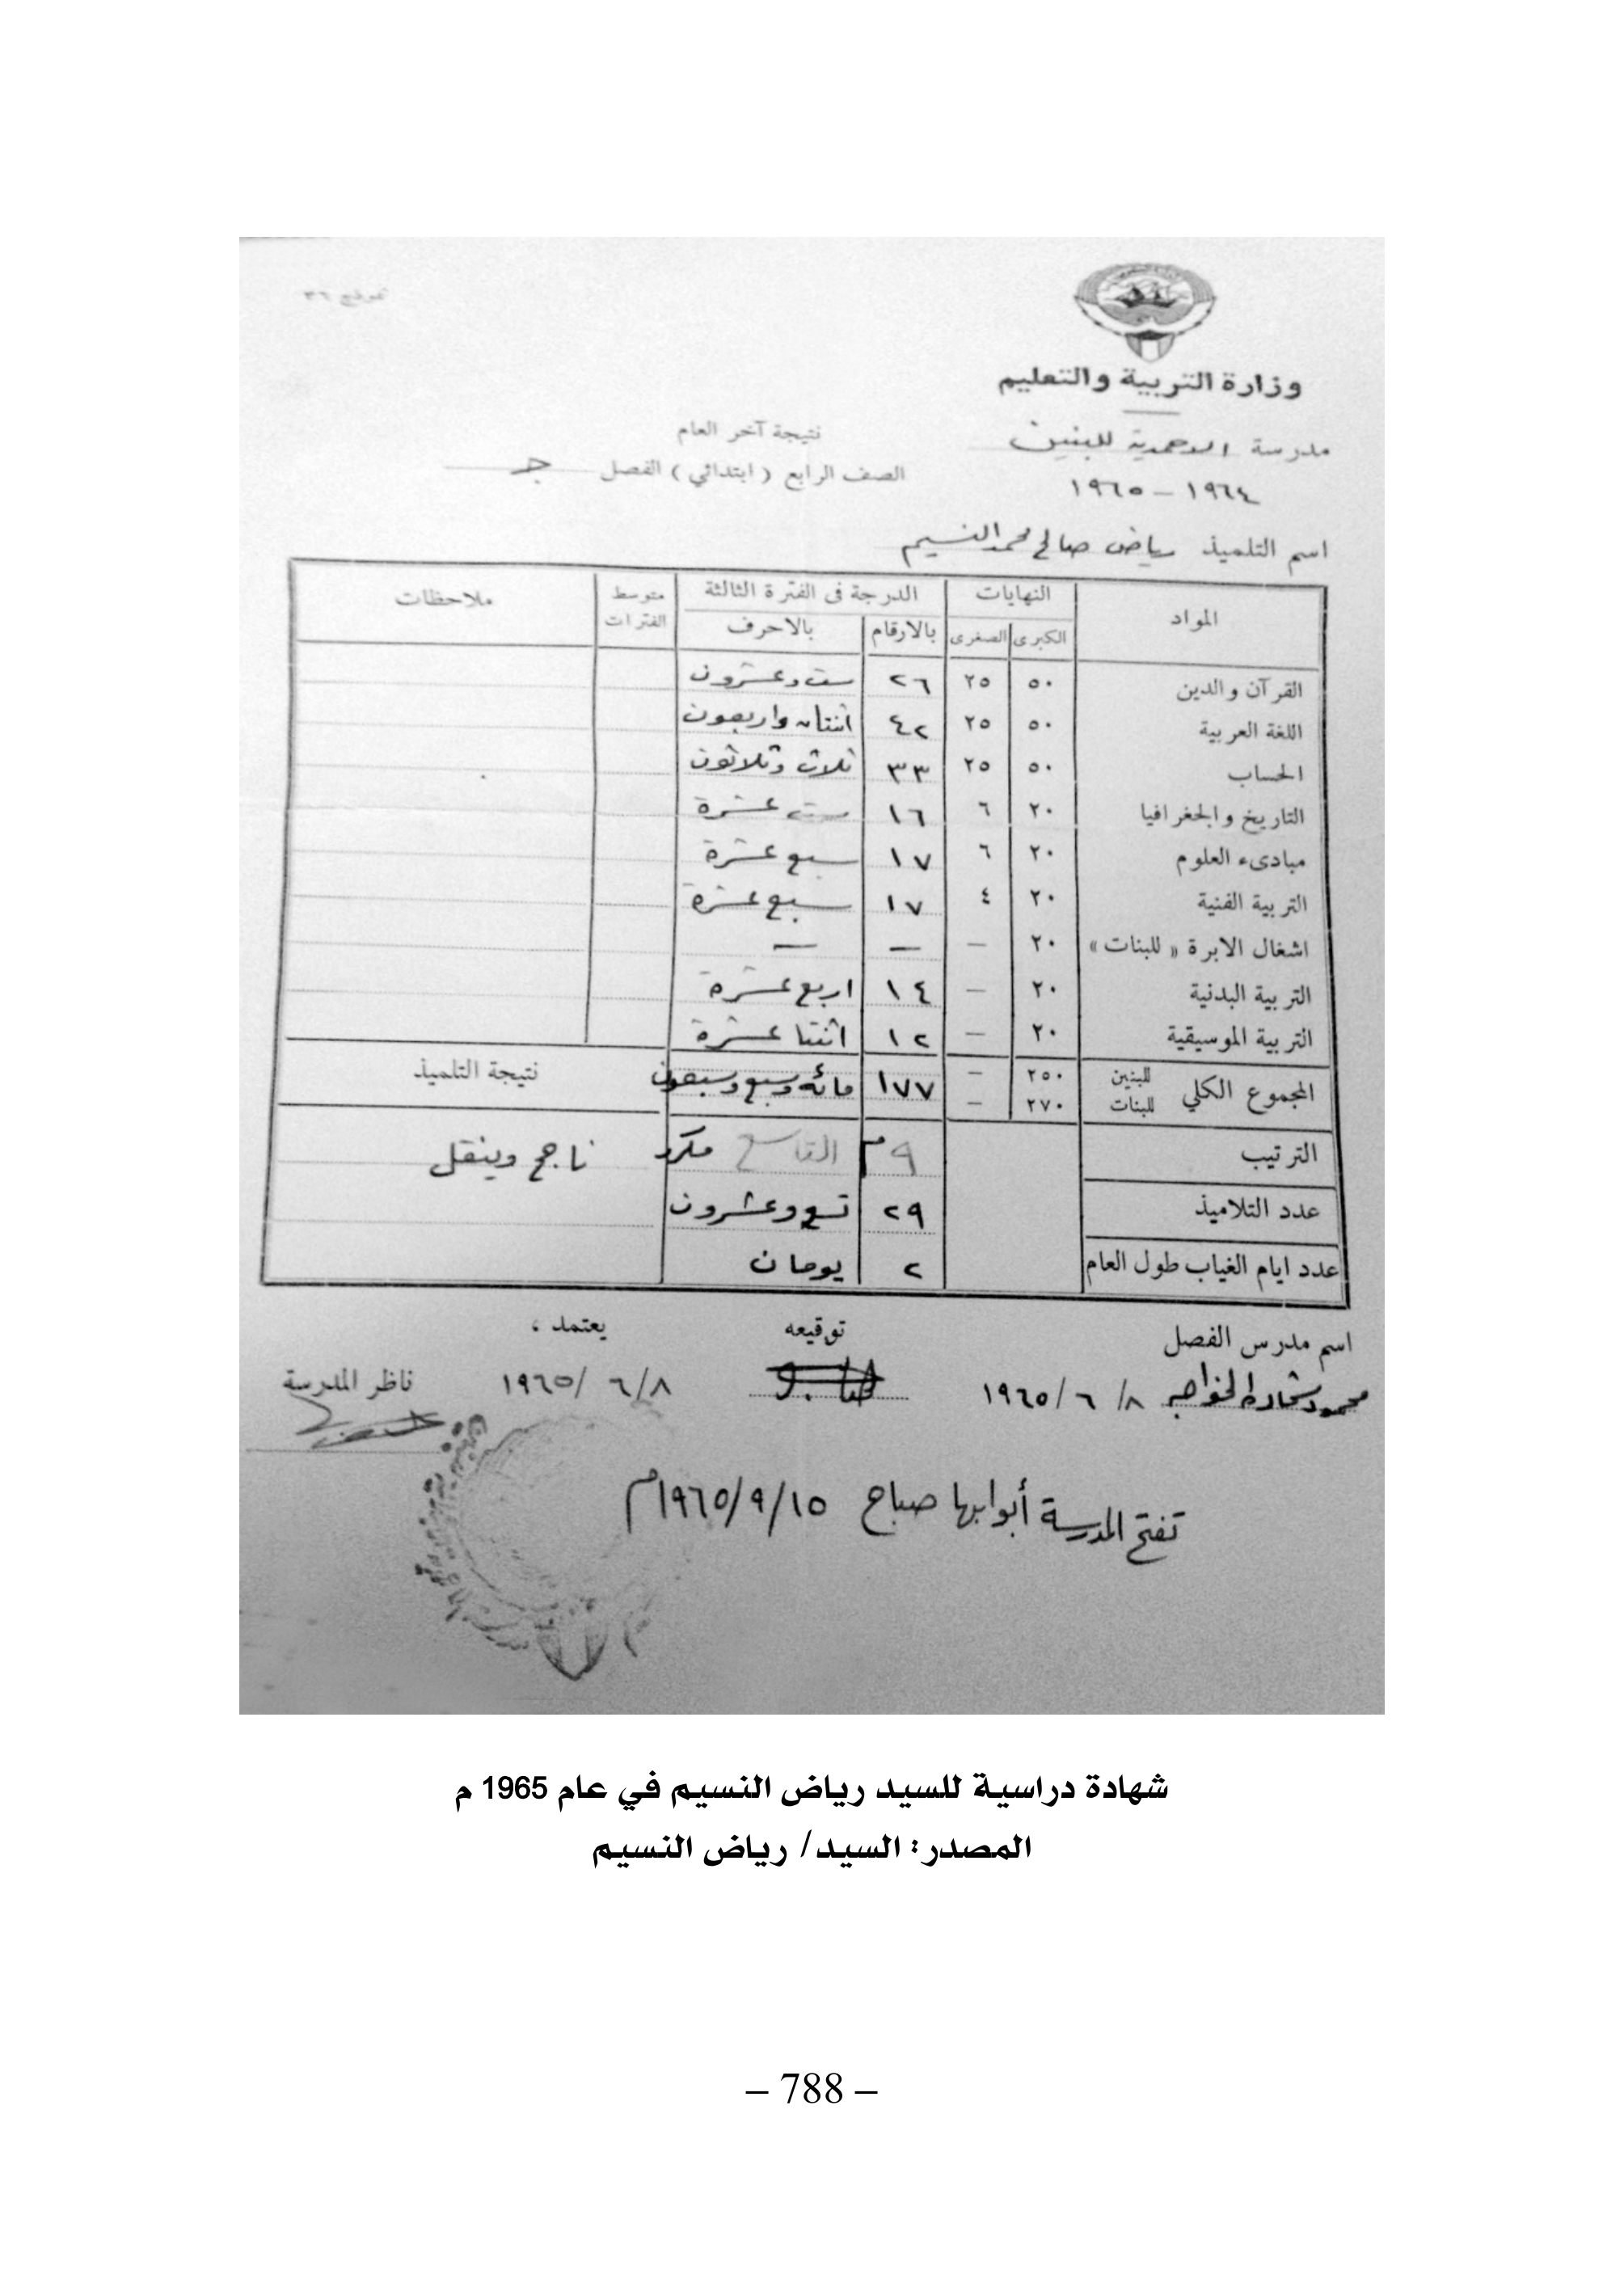 نموذج ٣٦
وزارة التربية والتعليم
مدرسة الاحمدية للبنين
١٩٦٤ – ١٩٦٥
نتيجة آخر العام
الصف الرابع ( ابتدائي ) الفصل جـ
اسم التلميذ رياض صالح محمد النسيم
المواد النهايات الدرجة فى الفترة الثالثة متوسط الفترات ملاحظات
الكبرى الصغرى بالارقام بالاحرف
القرآن والدين ٥٠ ٢٥ ٢٦ ست وعشرون
اللغة العربية ٥٠ ٢٥ ٤٢ اثنتان واربعون
الحساب ٥٠ ٢٥ ٣٣ ثلاث وثلاثون
التاريخ والجغرافيا ٢٠ ٦ ١٦ ست عشرة
مبادىء العلوم ٢٠ ٦ ١٧ سبع عشرة
التربية الفنية ٢٠ ٤ ١٧ سبع عشرة
اشغال الابرة « للبنات » ٢٠ – – –
التربية البدنية ٢٠ – ١٤ اربع عشرة
التربية الموسيقية ٢٠ – ١٢ اثنتا عشرة
المجموع الكلي للبنين ٢٥٠ – ١٧٧ مائه وسبع وسبعون نتيجة التلميذ
للبنات ٢٧٠ –
الترتيب ٩م التاسع مكرر ناجح وينقل
عدد التلاميذ ٢٩ تسع وعشرون
عدد ايام الغياب طول العام ٢ يومان
اسم مدرس الفصل توقيعه يعتمد ،
محمود شحادة الخواجه ٨/ ٦ / ١٩٦٥ ٦/٨ /١٩٦٥ ناظر المدرسة
تفتح المدرسة أبوابها صباح ١٩٦٥/٩/١٥م
شهادة دراسية للسيد رياض النسيم في عام 1965 م
المصدر: السيد/ رياض النسيم
– 788 –